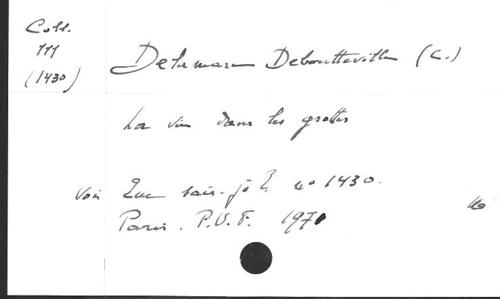 Coll.
111
(1430)
Delamare Deboutteville (C.)
La vie dans les grottes
voir Que sais-je ? n° 1430.
Paris. P.U.F. 1971